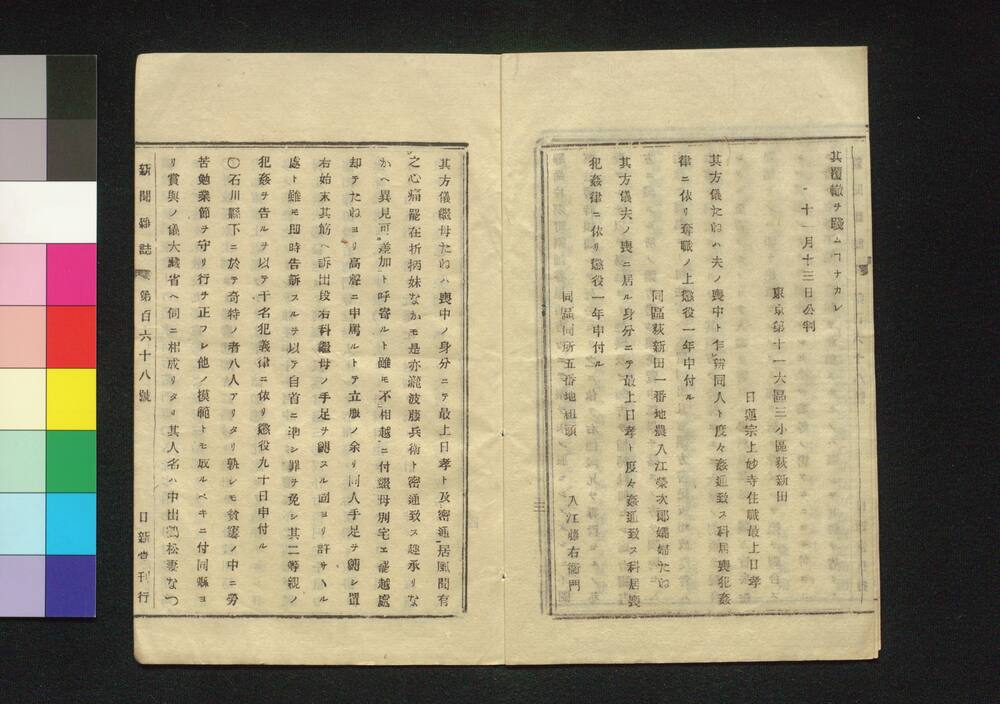 其覆轍ヲ踐ムヿナカレ
十一月十三日公判
東京第十一大區三小區荻新田
日蓮宗上妙寺住職最上日孝
其方儀たねハ夫ノ喪中ト乍辨同人ト度々姦通致ス科居喪犯姦
律ニ依リ奪職ノ上懲役一年申付ル
同區荻新田一番地農入江榮次郎孀婦たね
其方儀夫ノ喪ニ居ル身分ニテ最上日孝ト度々姦通致ス科居喪
犯姦律ニ依リ懲役一年申付ル
同區同所五番地組頭 入江藤右衞門
三
其方儀繼母たねハ喪中ノ身分ニテ最上日孝ト及密通居風聞有
之心痛罷在折柄妹なかモ是亦瀧波藤兵衛ト密通致ス趣承リな
かヘ異見可差加ト呼寄ルト雖モ不相越ニ付繼母別宅エ罷越處
却テたねヨリ高聲ニ申罵ルトテ立服ノ余リ同人手足ヲ縛シ置
右始末其筋ヘ訴出段右科繼母ノ手足ヲ縛スル固ヨリ許サヽル
處ト雖モ即時告訴スルヲ以テ自首ニ準シ罪ヲ免シ其二等親ノ
犯姦ヲ告ルヲ以テ干名犯義律ニ依リ懲役九十日申付ル
〇石川縣下ニ於テ奇特ノ者八人アリタリ孰レモ貧窶ノ中ニ勞
苦勉業節ヲ守リ行ヲ正フレ他ノ模範トモ成ルベキニ付同縣ヨ
リ賞與ノ儀大藏省ヘ伺ニ相成リタリ其人名ハ中出鶴松妻なつ
新聞雜誌 第百六十八號 日新堂刊行